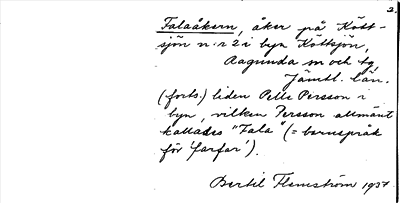 2.
Falaåkern, åker på Kött-
sjön n:r 2 i byn Köttsjön,
Ragunda sn och tg,
Jämtl. län.
(forts.) liden Pelle Persson i
byn, vilken Persson allmänt
kallades "Fala" (= barnspråk
för 'farfar').
Bertil Flemström 1937.